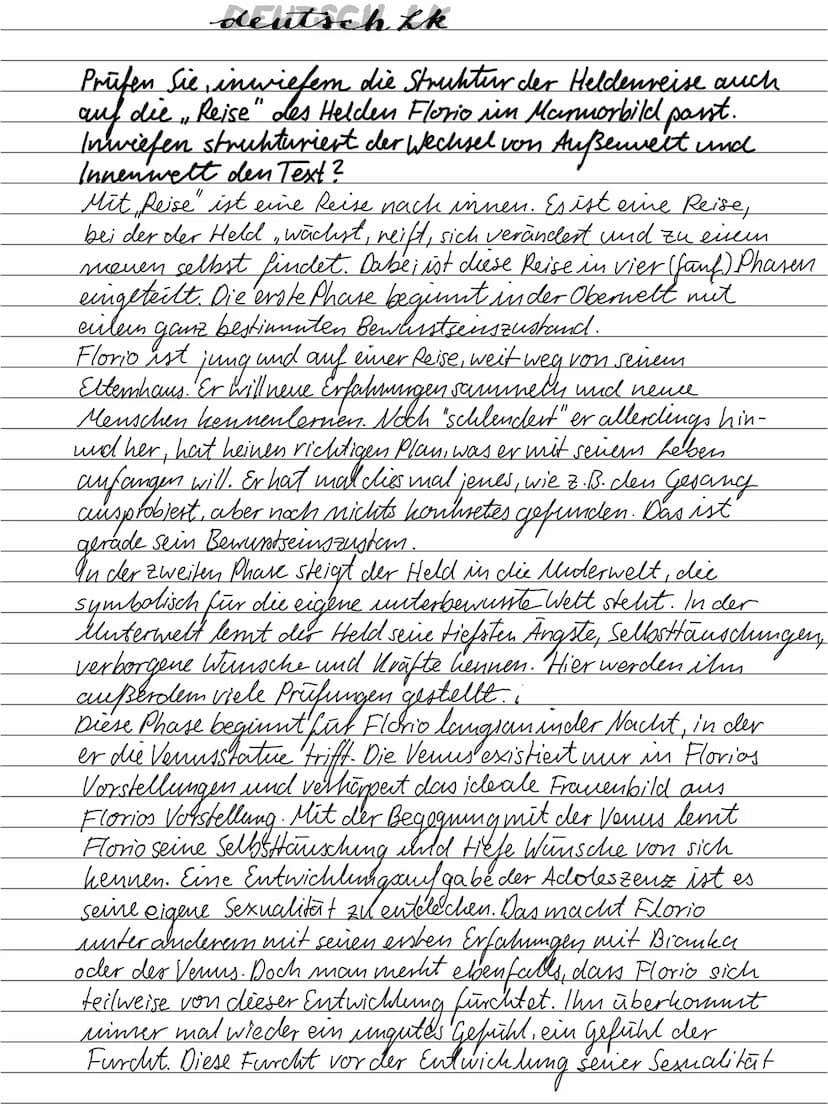 deutsch Lk
Prüfen Sie, inwiefern die Struktur der Heldenreise auch
auf die „Reise" des Helden Florio im Marmorbild passt.
Inwiefen strukturiert der Wechsel von Außenwelt und
Innenwelt den Text?
Mit „Reise" ist eine Reise nach innen. Es ist eine Reise,
bei der der Held „wächst, reift, sich verändert und zu einem
neuen selbst findet. Dabei ist diese Reise in vier (fünf) Phasen
eingeteilt. Die erste Phase beginnt in der Oberwelt mit
einem ganz bestimmten Bewusstseinszustand.
Florio ist jung und auf einer Reise, weit weg von seinem
Elternhaus. Er will neue Erfahrungen sammeln und neue
Menschen kennenlernen. Noch "schlendert" er allerdings hin-
und her, hat keinen richtigen Plan, was er mit seinem Leben
anfangen will. Er hat mal dies mal jenes, wie z.B. den Gesang
ausprobiert, aber noch nichts konkretes gefunden. Das ist
gerade sein Bewusstseinszustam.
In der zweiten Phase steigt der Held in die Unterwelt, die
symbolisch für die eigene unterbewusste Welt steht. In der
Unterwelt lernt der Held seine tiefsten Ängste, Selbsttäuschungen,
verborgene Wünsche und Kräfte kennen. Hier werden ihm
außerdem viele Prüfungen gestellt.
Diese Phase beginnt für Florio langsam in der Nacht, in der
er die Venusstatue trifft. Die Venus existiert nur in Florios
Vorstellungen und verkörpert das ideale Frauenbild aus
Florios Vorstellung. Mit der Begegnung mit der Venus lernt
Florio seine Selbsttäuschung und tiefe Wünsche von sich
kennen. Eine Entwicklungsaufgabe der Adoleszenz ist es
seine eigene Sexualität zu entdecken. Das macht Florio
unter anderem mit seinen ersten Erfahrungen mit Bianka
oder der Venus. Doch man merkt ebenfalls, dass Florio sich
teilweise von dieser Entwicklung fürchtet. Ihn überkommt
immer mal wieder ein ungutes Gefühl, ein Gefühl der
Furcht. Diese Furcht vor der Entwicklung seiner Sexualität